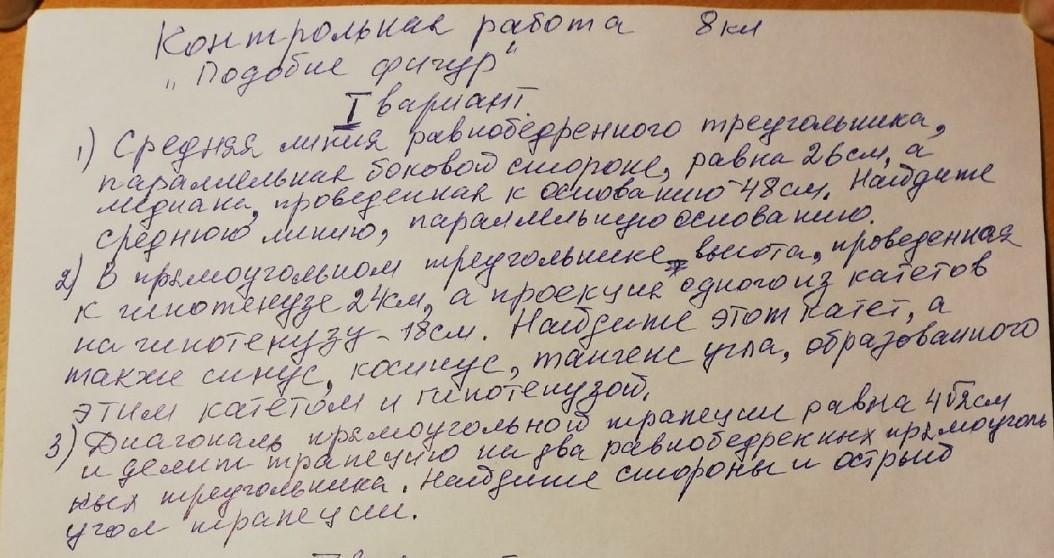 Контрольная работа 8кл
„Подобие фигур"
I вариант.
1) Средняя линия равнобедренного треугольника,
параллельная боковой стороне, равна 26см, а
медиана, проведенная к основанию - 48см. Найдите
среднюю линию, параллельную основанию.
2) В прямоугольном треугольнике высота, проведенная
к гипотенузе 24см, а проекция одного из катетов
на гипотенузу - 18см. Найдите этот катет, а
также синус, косинус, тангенс угла, образованного
этим катетом и гипотенузой.
3) Диагональ прямоугольной трапеции равна 4√2см
и делит трапецию на два равнобедренных прямоуголь
ных треугольника. Найдите стороны и острый
угол трапеции.